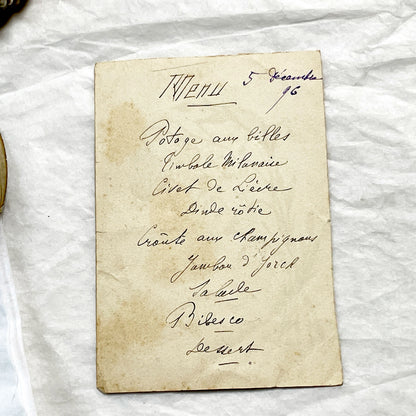 Menu 5 décembre
96
Potage aux billes
Timbale Milanaise
Civet de Lièvre
Dinde rôtie
Croûte aux champignons
Jambon d'York
Salade
Bibesco
Dessert